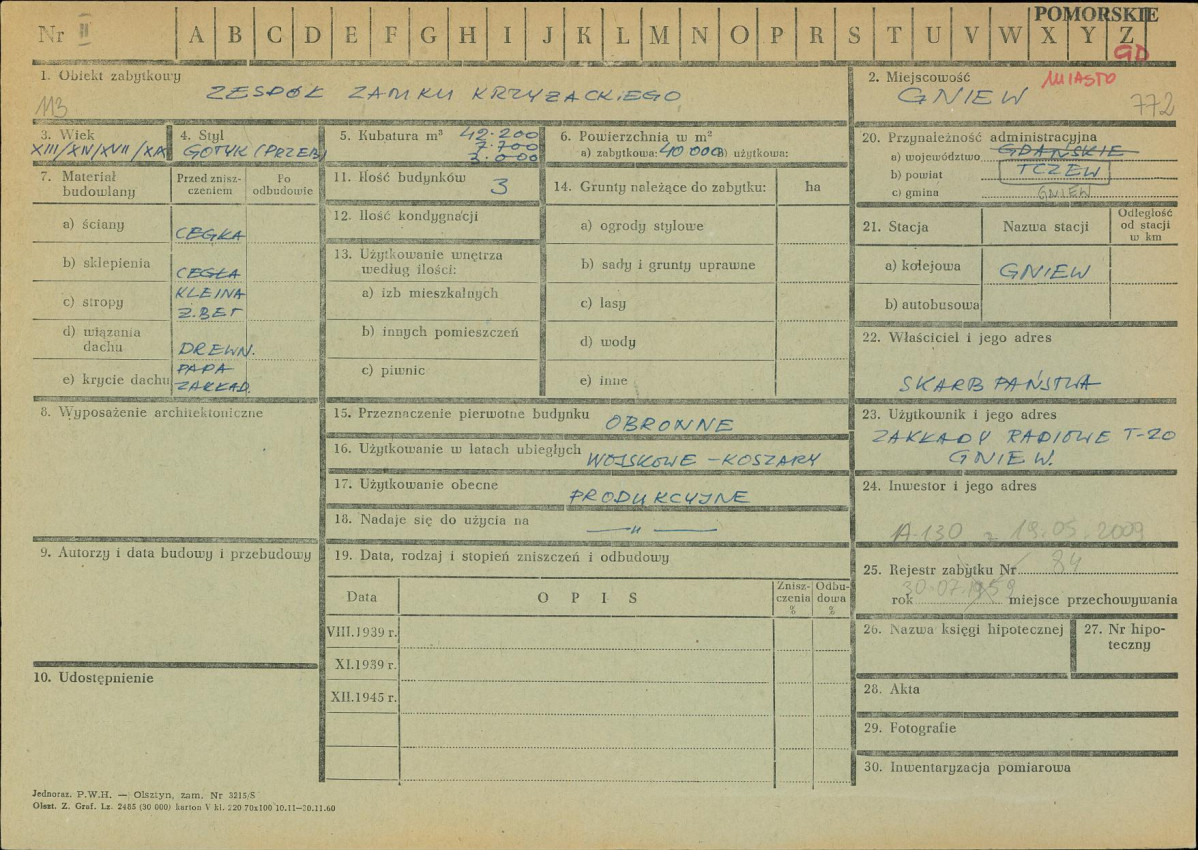 POMORSKIE
Nr II A B C D E F G H I J K L M N O P R S T U V W X Y Z
GD
1. Obiekt zabytkowy
ZESPÓŁ ZAMKU KRZYŻACKIEGO
113
2. Miejscowość MIASTO
GNIEW 772
3. Wiek
XIII/XIV/XVII/XIX
4. Styl
GOTYK (PRZEB)
5. Kubatura m³ 42.200
7.700
3.000
6. Powierzchnia w m²
a) zabytkowa: 40 000 b) użytkowa:
7. Materiał budowlany
Przed zniszczeniem
Po odbudowie
a) ściany CEGŁA
b) sklepienia CEGŁA
c) stropy KLEINA
Ż.BET
d) wiązania dachu DREWN.
e) krycie dachu PAPA
ZAKŁAD.
8. Wyposażenie architektoniczne
9. Autorzy i data budowy i przebudowy
10. Udostępnienie
11. Ilość budynków 3
12. Ilość kondygnacji
13. Użytkowanie wnętrza
według ilości:
a) izb mieszkalnych
b) innych pomieszczeń
c) piwnic
14. Grunty należące do zabytku: ha
a) ogrody stylowe
b) sady i grunty uprawne
c) lasy
d) wody
e) inne
15. Przeznaczenie pierwotne budynku OBRONNE
16. Użytkowanie w latach ubiegłych WOJSKOWE – KOSZARY
17. Użytkowanie obecne PRODUKCYJNE
18. Nadaje się do użycia na — " —
19. Data, rodzaj i stopień zniszczeń i odbudowy
Data O P I S Zniszczenia % Odbudowa %
VIII.1939 r.
XI.1939 r.
XII.1945 r.
20. Przynależność administracyjna
a) województwo GDAŃSKIE
b) powiat TCZEW
c) gmina GNIEW
21. Stacja Nazwa stacji Odległość od stacji w km
a) kolejowa GNIEW
b) autobusowa
22. Właściciel i jego adres
SKARB PAŃSTWA
23. Użytkownik i jego adres
ZAKŁADY RADIOWE T-20
GNIEW.
24. Inwestor i jego adres
A-130 z 19.05.2009
25. Rejestr zabytku Nr 84
30-07.1959
rok miejsce przechowywania
26. Nazwa księgi hipotecznej
27. Nr hipoteczny
28. Akta
29. Fotografie
30. Inwentaryzacja pomiarowa
Jednoraz. P.W.H. — Olsztyn, zam. Nr 3215/S
Olszt. Z. Graf. Lz. 2485 (30 000) karton V kl. 220 70x100 10.11—30.11.60